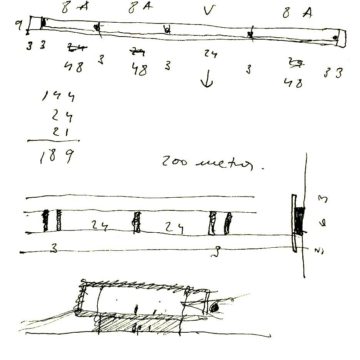 8 A 8 A V 8 A
9
3 3 24 3 24 3 24 3 24 3 3
48 48 48
144
24
21
189
200 meter.
24 24
3 3
3
6
3